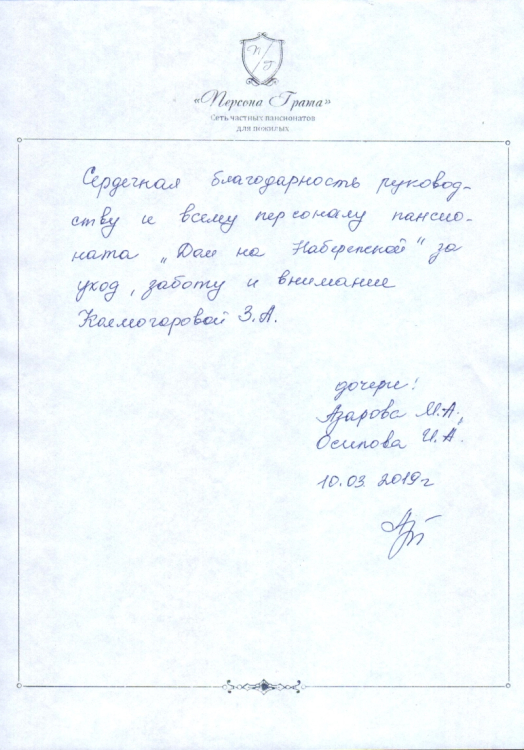 П/Г
«Персона Грата»
Сеть частных пансионатов
для пожилых
Сердечная благодарность руковод-
ству и всему персоналу пансио-
ната „Дом на Набережной" за
уход, заботу и внимание
З.А.
дочери:
Азарова М.А.,
Осипова И.А.
10.03.2019г